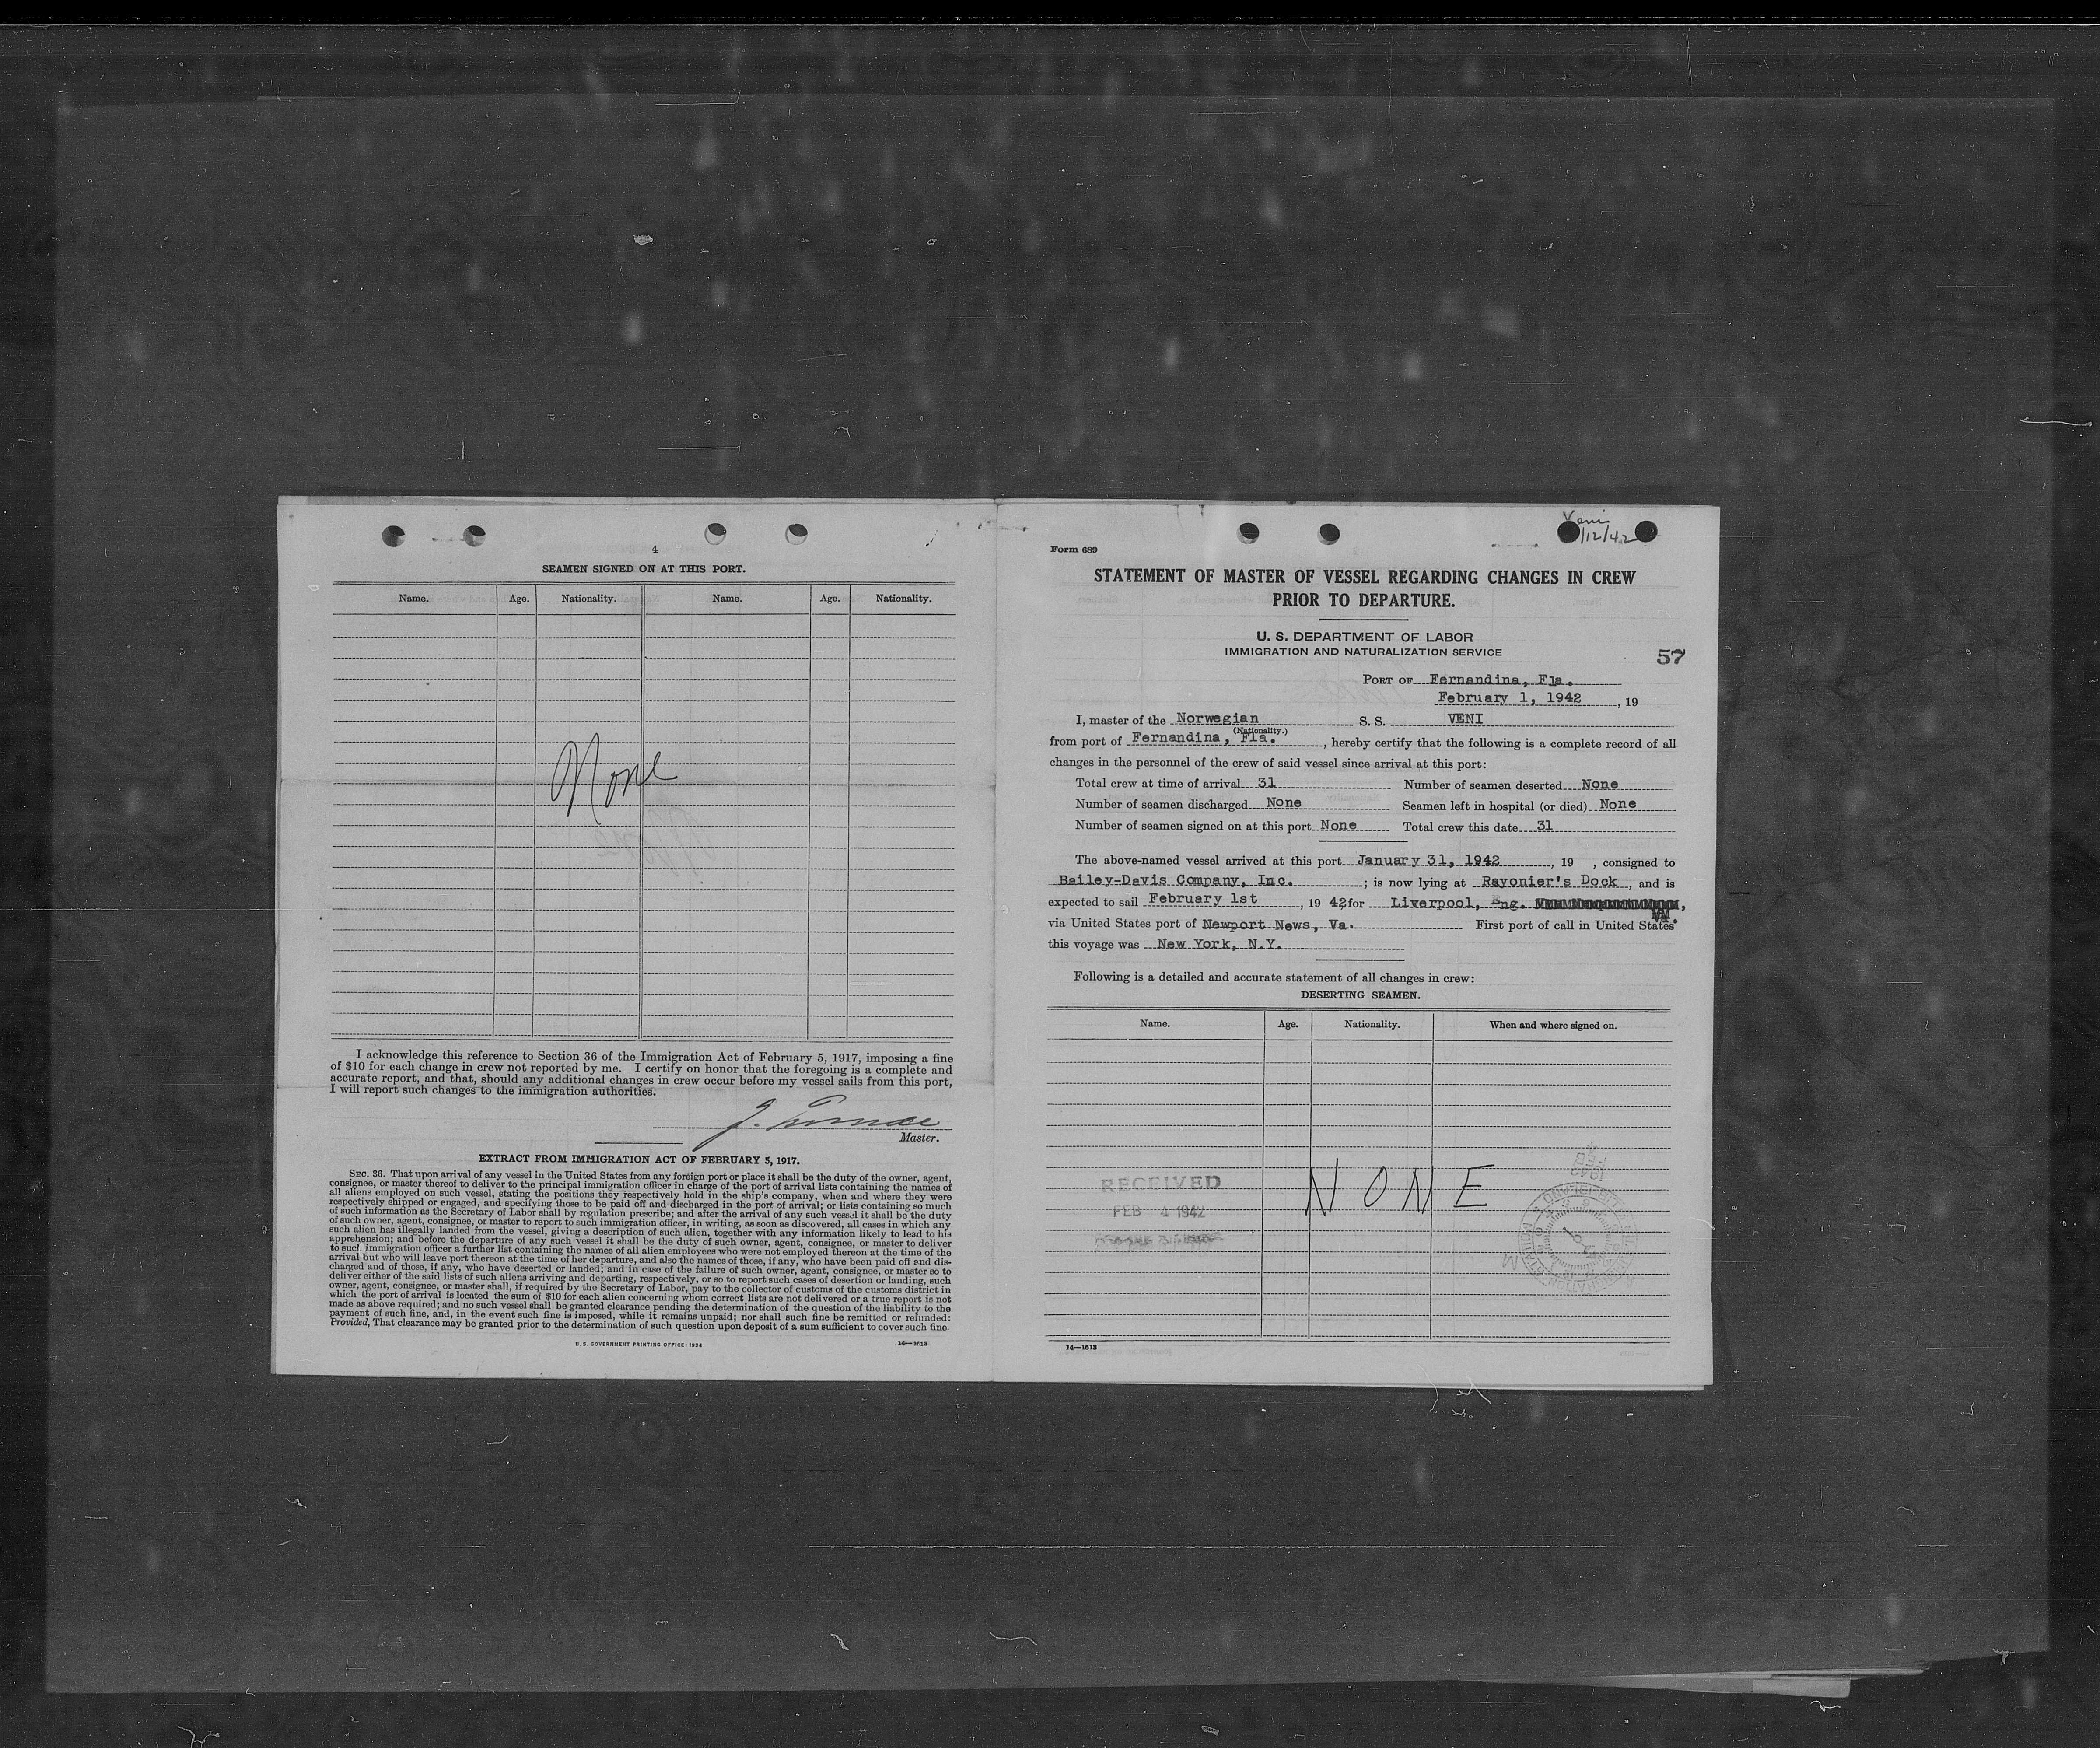 4
SEAMEN SIGNED ON AT THIS PORT.
Name. Age. Nationality. Name. Age. Nationality.
None
I acknowledge this reference to Section 36 of the Immigration Act of February 5, 1917, imposing a fine
of $10 for each change in crew not reported by me. I certify on honor that the foregoing is a complete and
accurate report, and that, should any additional changes in crew occur before my vessel sails from this port,
I will report such changes to the immigration authorities.
Master.
EXTRACT FROM IMMIGRATION ACT OF FEBRUARY 5, 1917.
SEC. 36. That upon arrival of any vessel in the United States from any foreign port or place it shall be the duty of the owner, agent,
consignee, or master thereof to deliver to the principal immigration officer in charge of the port of arrival lists containing the names of
all aliens employed on such vessel, stating the positions they respectively hold in the ship's company, when and where they were
respectively shipped or engaged, and specifying those to be paid off and discharged in the port of arrival; or lists containing so much
of such information as the Secretary of Labor shall by regulation prescribe; and after the arrival of any such vessel it shall be the duty
of such owner, agent, consignee, or master to report to such immigration officer, in writing, as soon as discovered, all cases in which any
such alien has illegally landed from the vessel, giving a description of such alien, together with any information likely to lead to his
apprehension; and before the departure of any such vessel it shall be the duty of such owner, agent, consignee, or master to deliver
to such immigration officer a further list containing the names of all alien employees who were not employed thereon at the time of the
arrival but who will leave port thereon at the time of her departure, and also the names of those, if any, who have been paid off and dis-
charged and of those, if any, who have deserted or landed; and in case of the failure of such owner, agent, consignee, or master so to
deliver either of the said lists of such aliens arriving and departing, respectively, or so to report such cases of desertion or landing, such
owner, agent, consignee, or master shall, if required by the Secretary of Labor, pay to the collector of customs of the customs district in
which the port of arrival is located the sum of $10 for each alien concerning whom correct lists are not delivered or a true report is not
made as above required; and no such vessel shall be granted clearance pending the determination of the question of the liability to the
payment of such fine, and, in the event such fine is imposed, while it remains unpaid; nor shall such fine be remitted or refunded:
Provided, That clearance may be granted prior to the determination of such question upon deposit of a sum sufficient to cover such fine.
U.S. GOVERNMENT PRINTING OFFICE: 1934 14—1613
Veni
1/12/42
Form 689
STATEMENT OF MASTER OF VESSEL REGARDING CHANGES IN CREW
PRIOR TO DEPARTURE.
U. S. DEPARTMENT OF LABOR
IMMIGRATION AND NATURALIZATION SERVICE
57
PORT OF Fernandina, Fla.
February 1, 1942, 19
I, master of the Norwegian S. S. VENI
(Nationality.)
from port of Fernandina, Fla., hereby certify that the following is a complete record of all
changes in the personnel of the crew of said vessel since arrival at this port:
Total crew at time of arrival 31 Number of seamen deserted None
Number of seamen discharged None Seamen left in hospital (or died) None
Number of seamen signed on at this port None Total crew this date 31
The above-named vessel arrived at this port January 31, 1942, 19 , consigned to
Bailey-Davis Company, Inc.; is now lying at Rayonier's Dock, and is
expected to sail February 1st, 19 42, for Liverpool, Eng.,
via United States port of Newport News, Va. First port of call in United States
this voyage was New York, N.Y.
Following is a detailed and accurate statement of all changes in crew:
DESERTING SEAMEN.
Name. Age. Nationality. When and where signed on.
NONE
RECEIVED
FEB 4 1942
14—1613